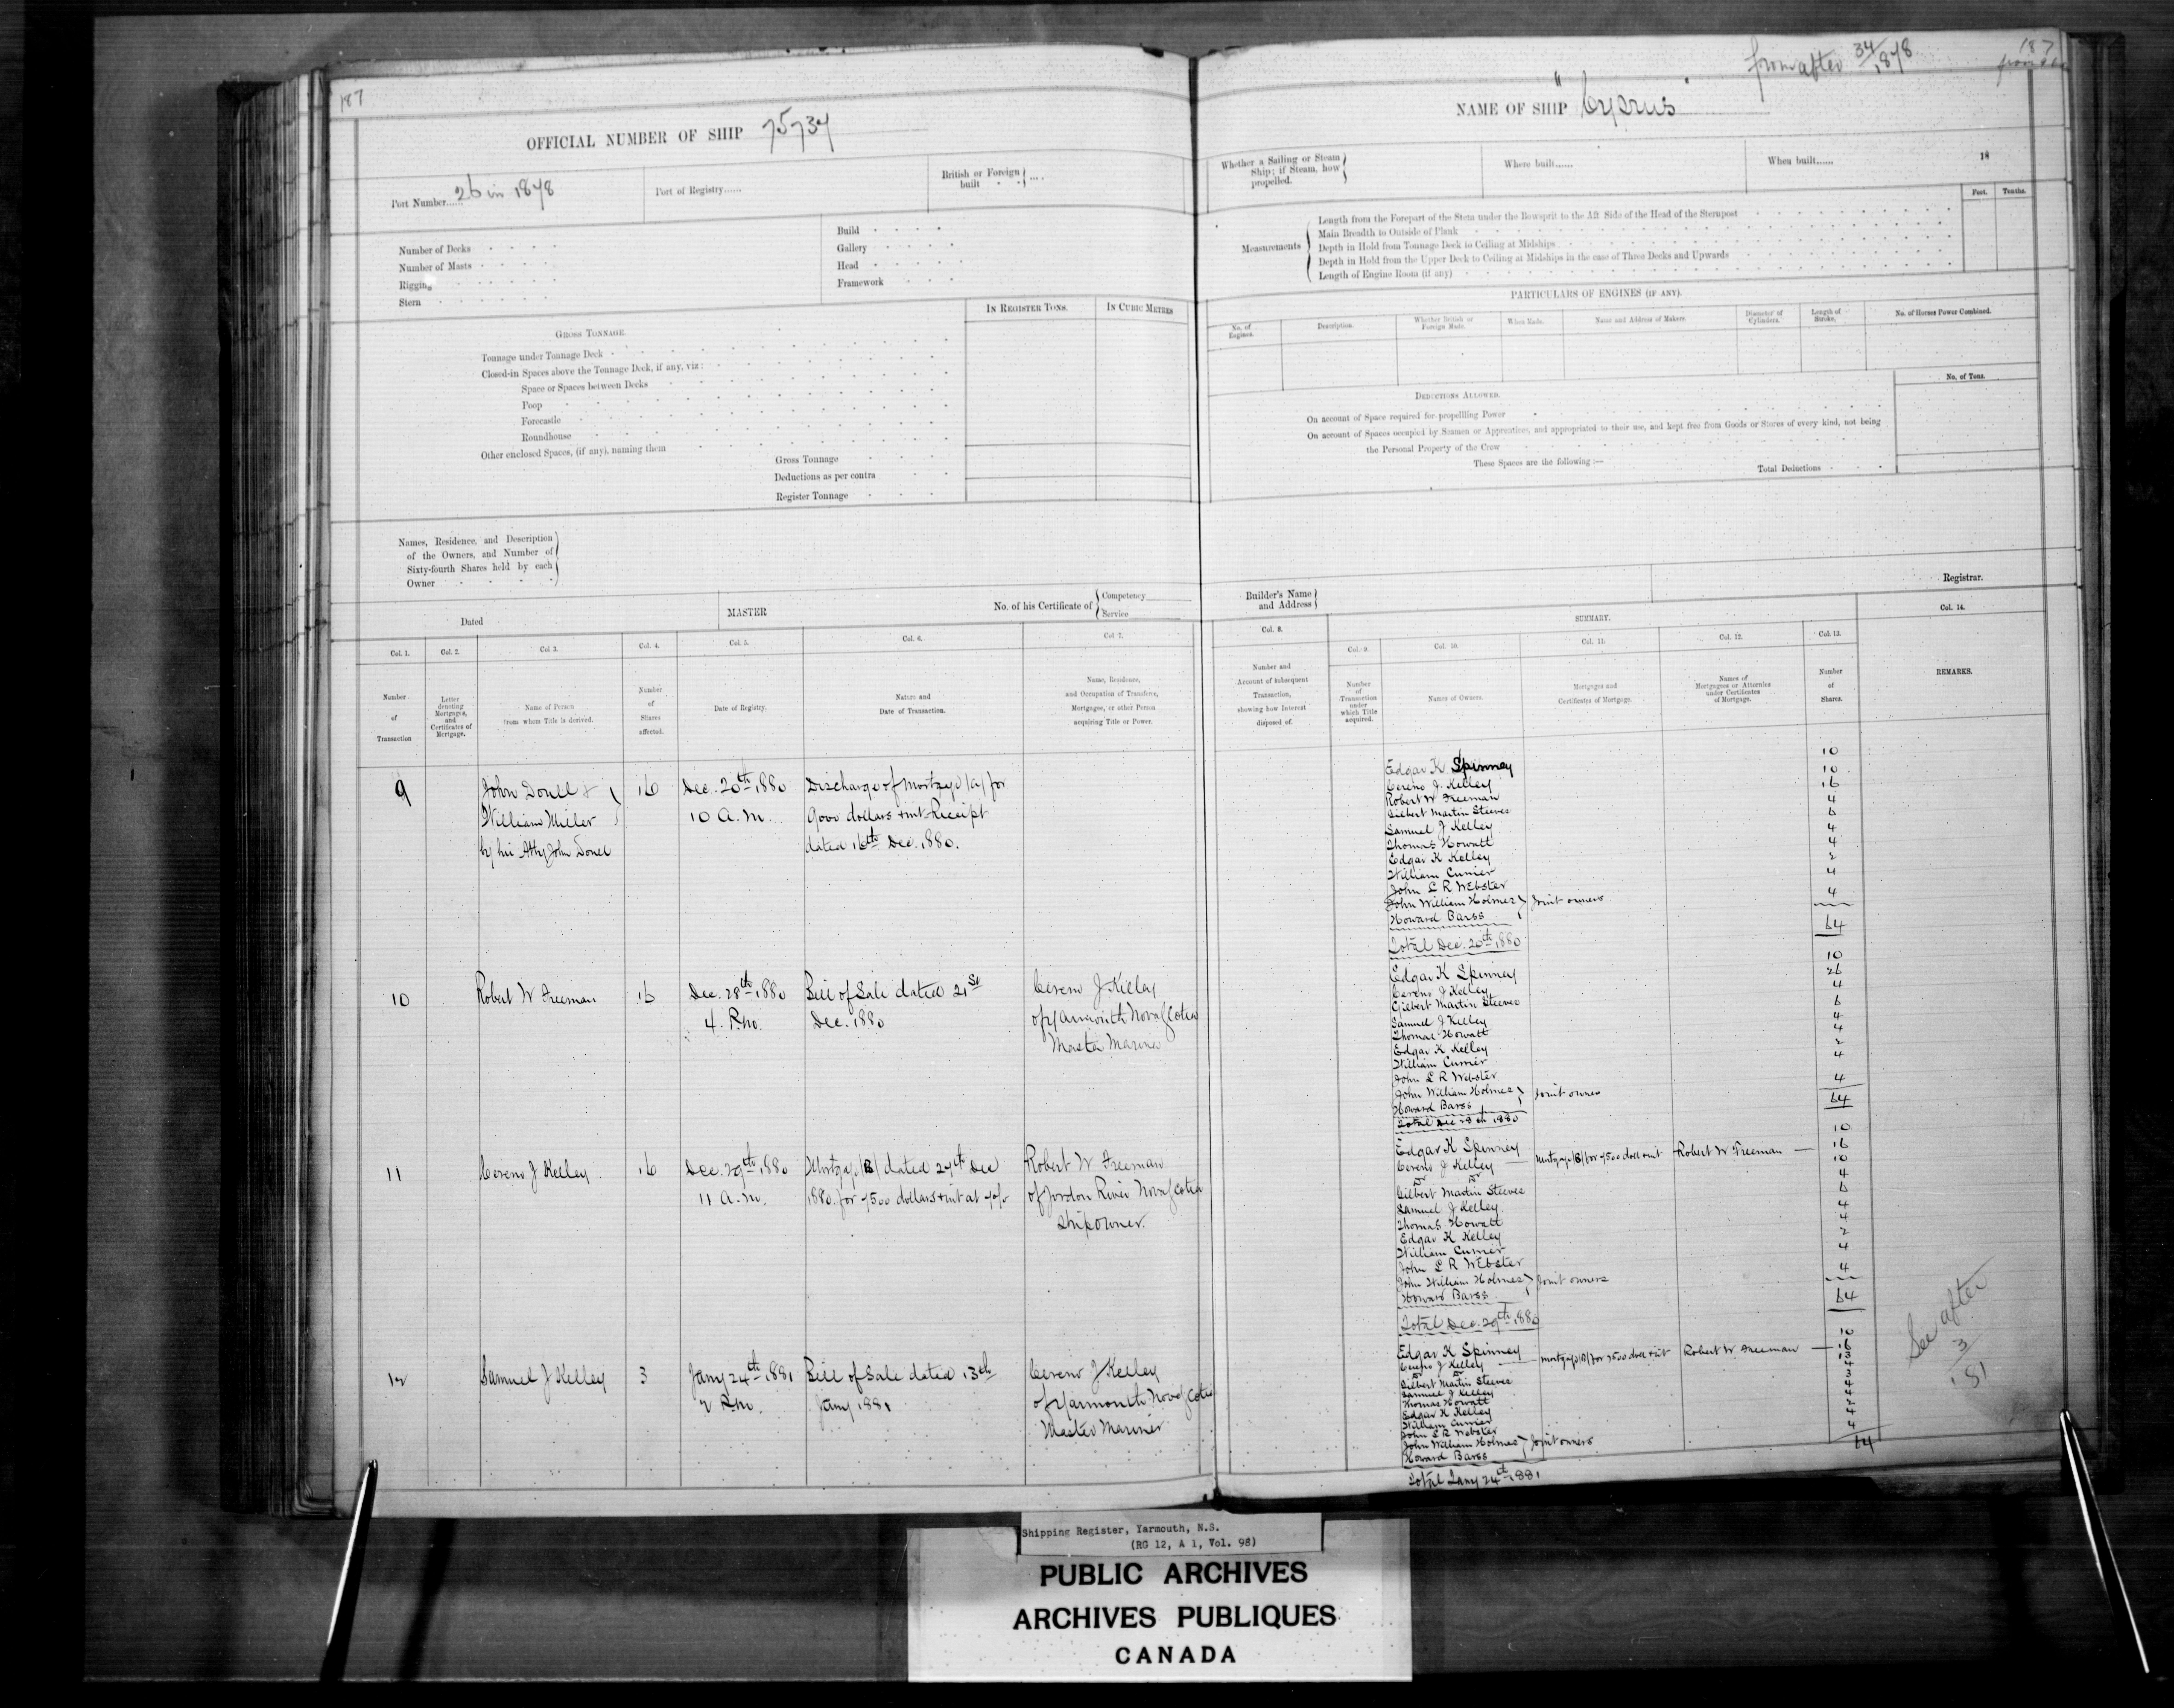 187
OFFICIAL NUMBER OF SHIP 75734
Port Number...... 26 in 1878
Port of Registry......
British or Foreign built ....
Number of Decks
Number of Masts
Rigging
Stern
Build
Gallery
Head
Framework
IN REGISTER TONS.
IN CUBIC METRES
GROSS TONNAGE.
Tonnage under Tonnage Deck
Closed-in Spaces above the Tonnage Deck, if any, viz:
Space or Spaces between Decks
Poop
Forecastle
Roundhouse
Other enclosed Spaces, (if any), naming them
Gross Tonnage
Deductions as per contra
Register Tonnage
Names, Residence, and Description
of the Owners, and Number of
Sixty-fourth Shares held by each
Owner
Dated
MASTER
No. of his Certificate of
Competency
Service
Col. 1.
Number
of
Transaction
Col. 2.
Letter
denoting
Mortgages,
and
Certificates of
Mortgage.
Col 3.
Name of Person
from whom Title is derived.
Col. 4.
Number
of
Shares
affected.
Col. 5.
Date of Registry.
Col. 6.
Nature and
Date of Transaction.
Col 7.
Name, Residence,
and Occupation of Transferee,
Mortgagee, or other Person
acquiring Title or Power.
9
John Donell &
William Miller
by his Atty John Donell
16
Dec. 20th 1880
10 A.M.
Discharge of Mortgage (A) for
9000 dollars + int Receipt
dated 16th Dec. 1880.
10
Robert W Freeman
16
Dec. 28th 1880
4. P.M.
Bill of Sale dated 21st
Dec. 1880
Cereno J Kelley
of Yarmouth Nova Scotia
Master Mariner
11
Cereno J Kelley
16
Dec. 29th 1880
11 A.M.
Mortgage (B) dated 27th Dec
1880. for 7500 dollars + int at
Robert W Freeman
of Jordon River Nova Scotia
Shipowner.
12
Samuel J Kelley
3
Jany 24th 1881
2 P.M.
Bill of Sale dated 13th
Jany 1881
Cereno J Kelley
of Yarmouth Nova Scotia
Master Mariner
from after 34/1878
187
NAME OF SHIP "Cyprus"
Whether a Sailing or Steam
Ship; if Steam, how
propelled.
Where built......
When built......
18
Measurements
Feet.
Tenths.
Length from the Forepart of the Stem under the Bowsprit to the Aft Side of the Head of the Sternpost
Main Breadth to Outside of Plank
Depth in Hold from Tonnage Deck to Ceiling at Midships
Depth in Hold from the Upper Deck to Ceiling at Midships in the case of Three Decks and Upwards
Length of Engine Room (if any)
PARTICULARS OF ENGINES (IF ANY).
No. of
Engines.
Description.
Whether British or
Foreign Made.
When Made.
Name and Address of Makers.
Diameter of
Cylinders.
Length of
Stroke.
No. of Horses Power Combined.
DEDUCTIONS ALLOWED.
No. of Tons.
On account of Space required for propellling Power
On account of Spaces occupied by Seamen or Apprentices, and appropriated to their use, and kept free from Goods or Stores of every kind, not being
the Personal Property of the Crew
These Spaces are the following :—
Total Deductions
Builder's Name
and Address
Registrar.
SUMMARY.
Col. 8.
Number and
Account of subsequent
Transaction,
showing how Interest
disposed of.
Col. 9.
Number
of
Transaction
under
which Title
acquired.
Col. 10.
Names of Owners.
Col. 11.
Mortgages and
Certificates of Mortgage.
Col. 12.
Names of
Mortgagees or Attornies
under Certificates
of Mortgage.
Col. 13.
Number
of
Shares.
Col. 14.
REMARKS.
Edgar K Spinney 10
Cereno J. Kelley 10
Robert W Freeman 16
Gilbert Martin Steeves 4
Samuel J Kelley 6
Thomas Howatt 4
Edgar K Kelley 4
William Currier 2
John L R Webster 4
John William Holmes
Howard Barss Joint owners 4
Total Dec. 20th 1880 64
Edgar K Spinney 10
Cereno J Kelley 26
Gilbert Martin Steeves 4
Samuel J Kelley 6
Thomas Howatt 4
Edgar K Kelley 4
William Currier 2
John L R Webster 4
John William Holmes
Howard Barss Joint owners 4
Total Dec 28th 1880 64
Edgar K Spinney 10
Cereno J Kelley — Mortgage (B) for 7500 doll + int Robert W Freeman — 16
Do Do 10
Gilbert Martin Steeves 4
Samuel J Kelley 6
Thomas Howatt 4
Edgar K Kelley 4
William Currier 2
John L R Webster 4
John William Holmes
Howard Barss Joint owners 4
Total Dec. 29th 1880 64
Edgar K Spinney 10
Cereno J Kelley — Mortgage (B) for 7500 doll + int Robert W. Freeman — 16
Do Do 13
Gilbert Martin Steeves 4
Samuel J Kelley 3
Thomas Howatt 4
Edgar K Kelley 4
William Currier 2
John L R Webster 4
John William Holmes
Howard Barss Joint owners 4
Total Jany 24th 1881 64
See after
3
181
Shipping Register, Yarmouth, N.S.
(RG 12, A 1, Vol. 98)
PUBLIC ARCHIVES
ARCHIVES PUBLIQUES
CANADA